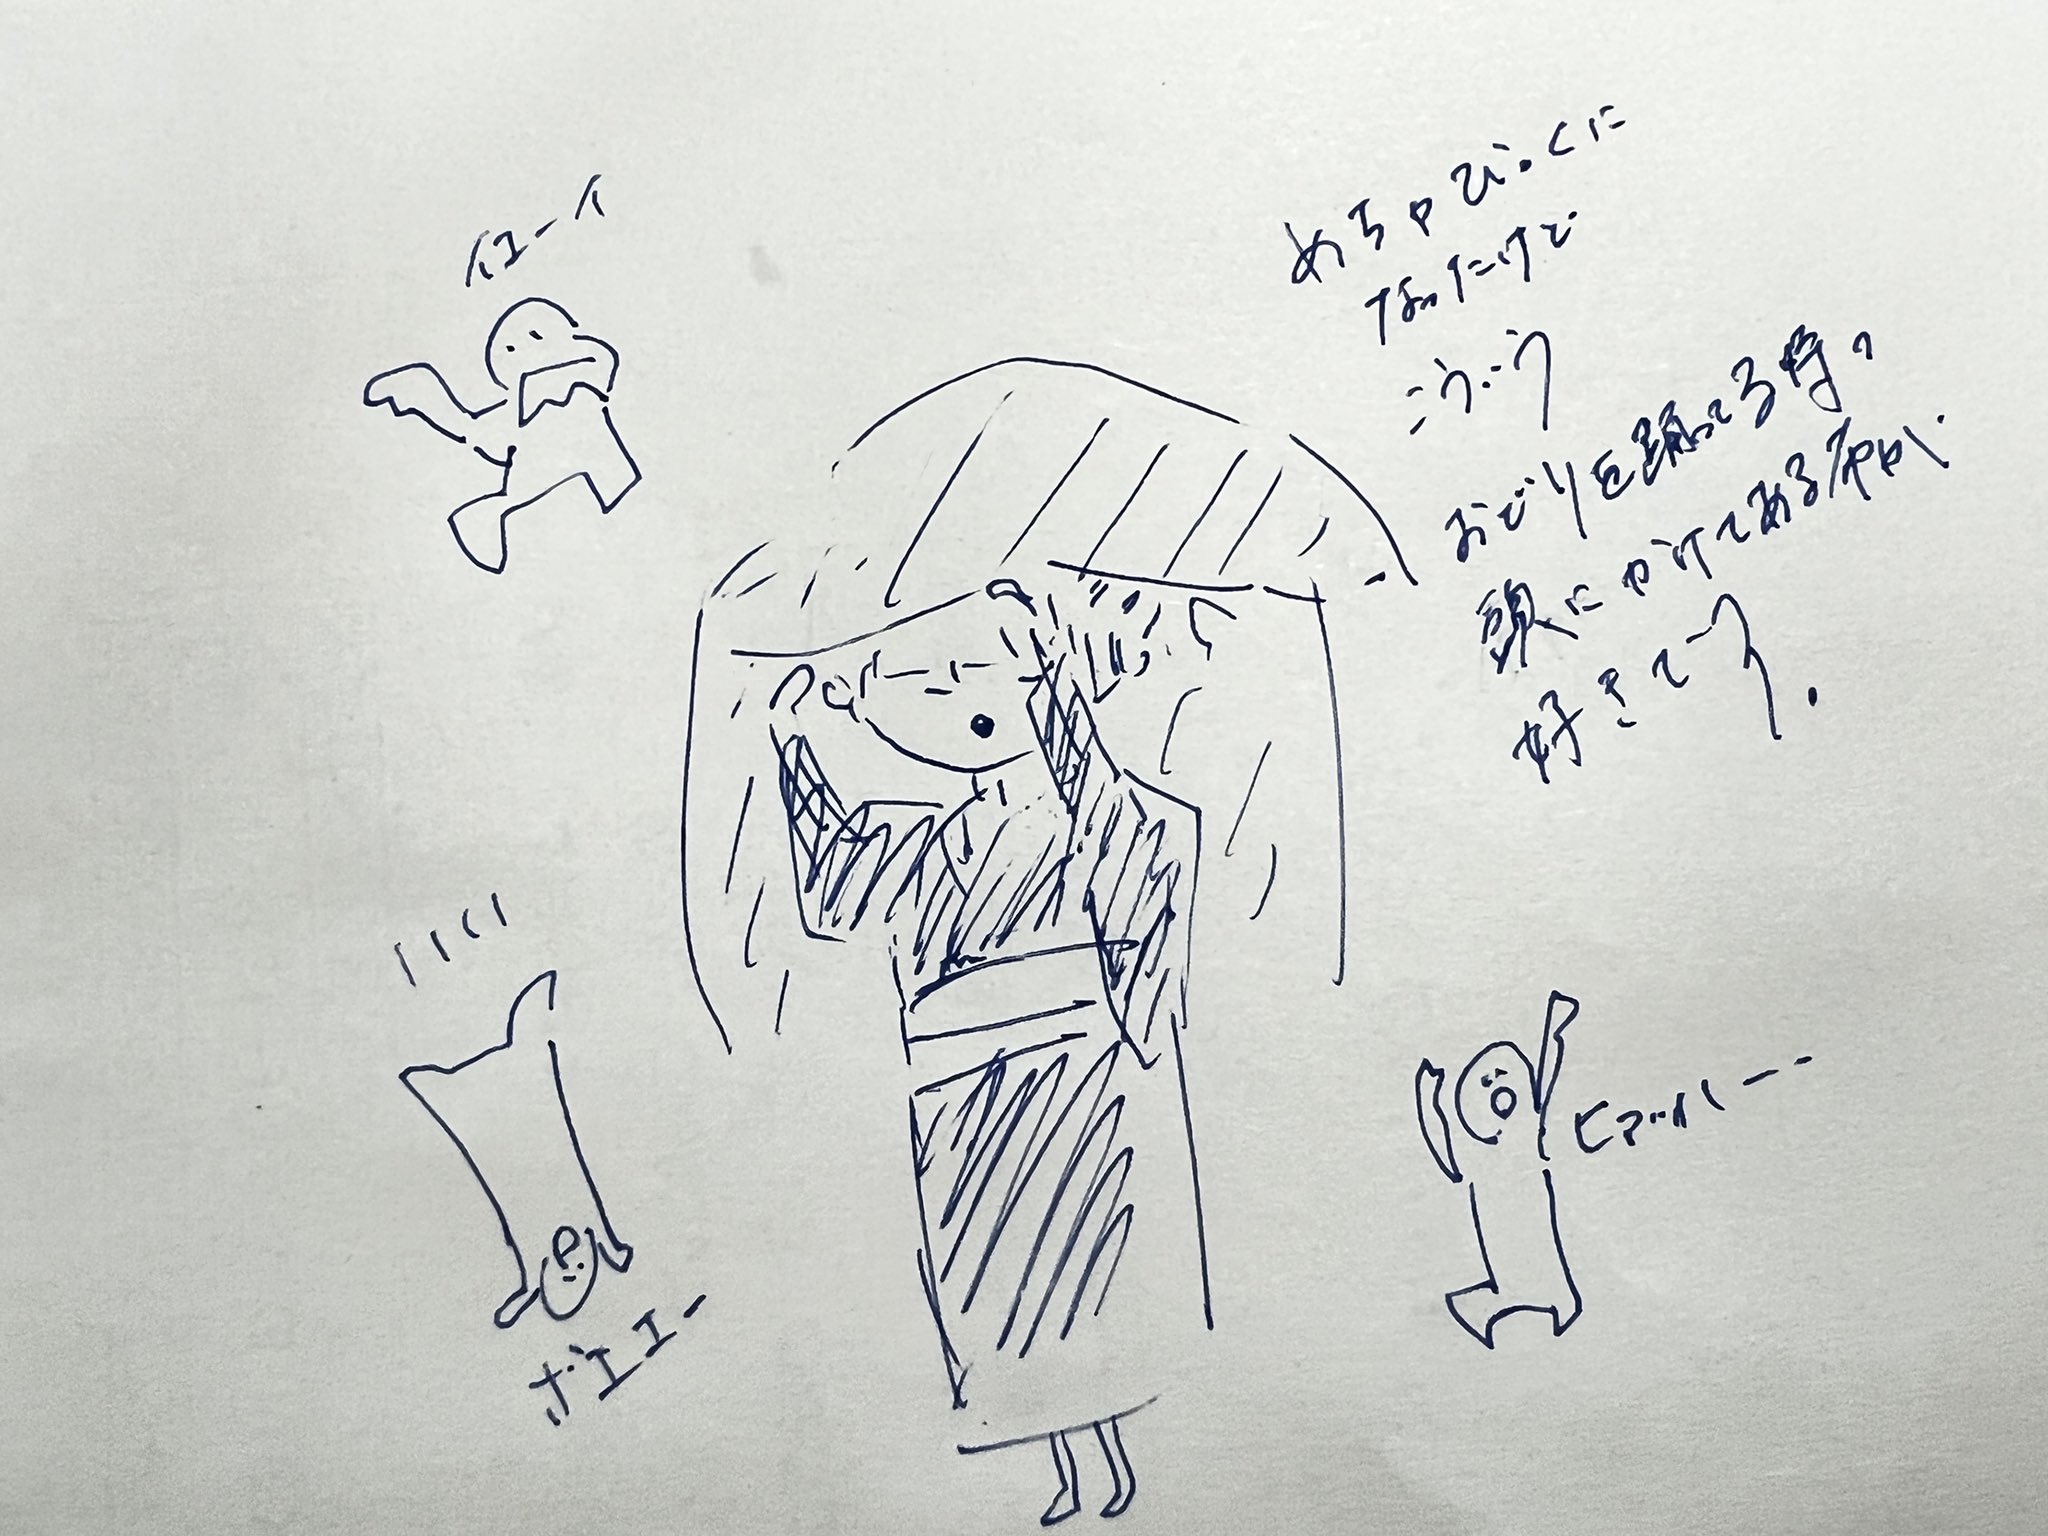 イエーイ
めちゃびっくに
なったけど
こういう
おどりを踊ってる時の
頭にかけてある布が
好きっていう。
ヒアッハー
ボエエー